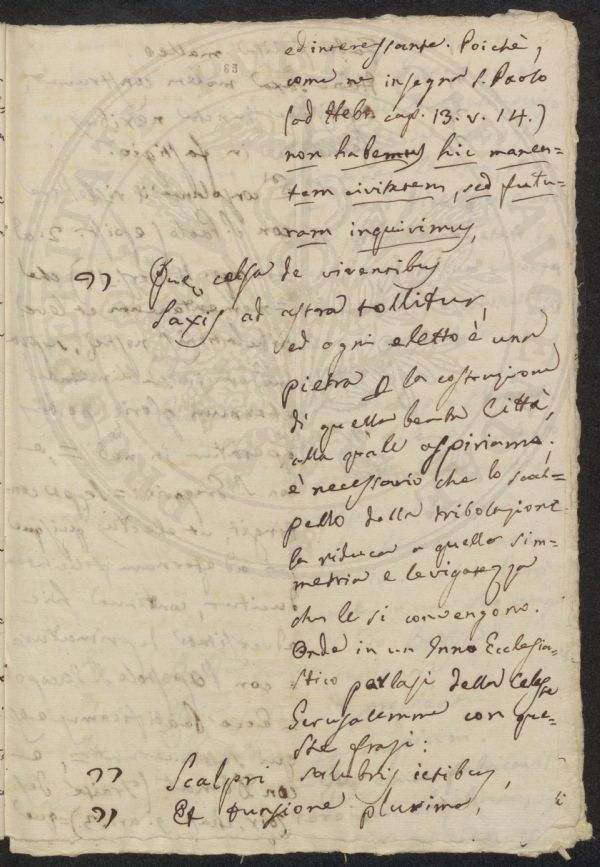 ed interessante. Poichè,
83
come ne insegna S. Paolo
(ad Hebr. cap. 13. v. 14.)
non habemus hic manen=
tem civitatem, sed futu=
ram inquirimus,
" Quę celsa de viventibus
Saxis ad astra tollitur,
ed ogni eletto è una
pietra p la costruzione
di quella beata Città,
alla quale aspiriamo;
è necessario che lo scal=
pello della tribolazione
la riduca a quella sim=
metria e levigatezza
che le si convengono.
Onde in un Inno Ecclesia=
stico parlasi della Celeste
Gerusalemme con que=
ste frasi:
" Scalpri salubris ictibus,
" Et tunsione plurima,